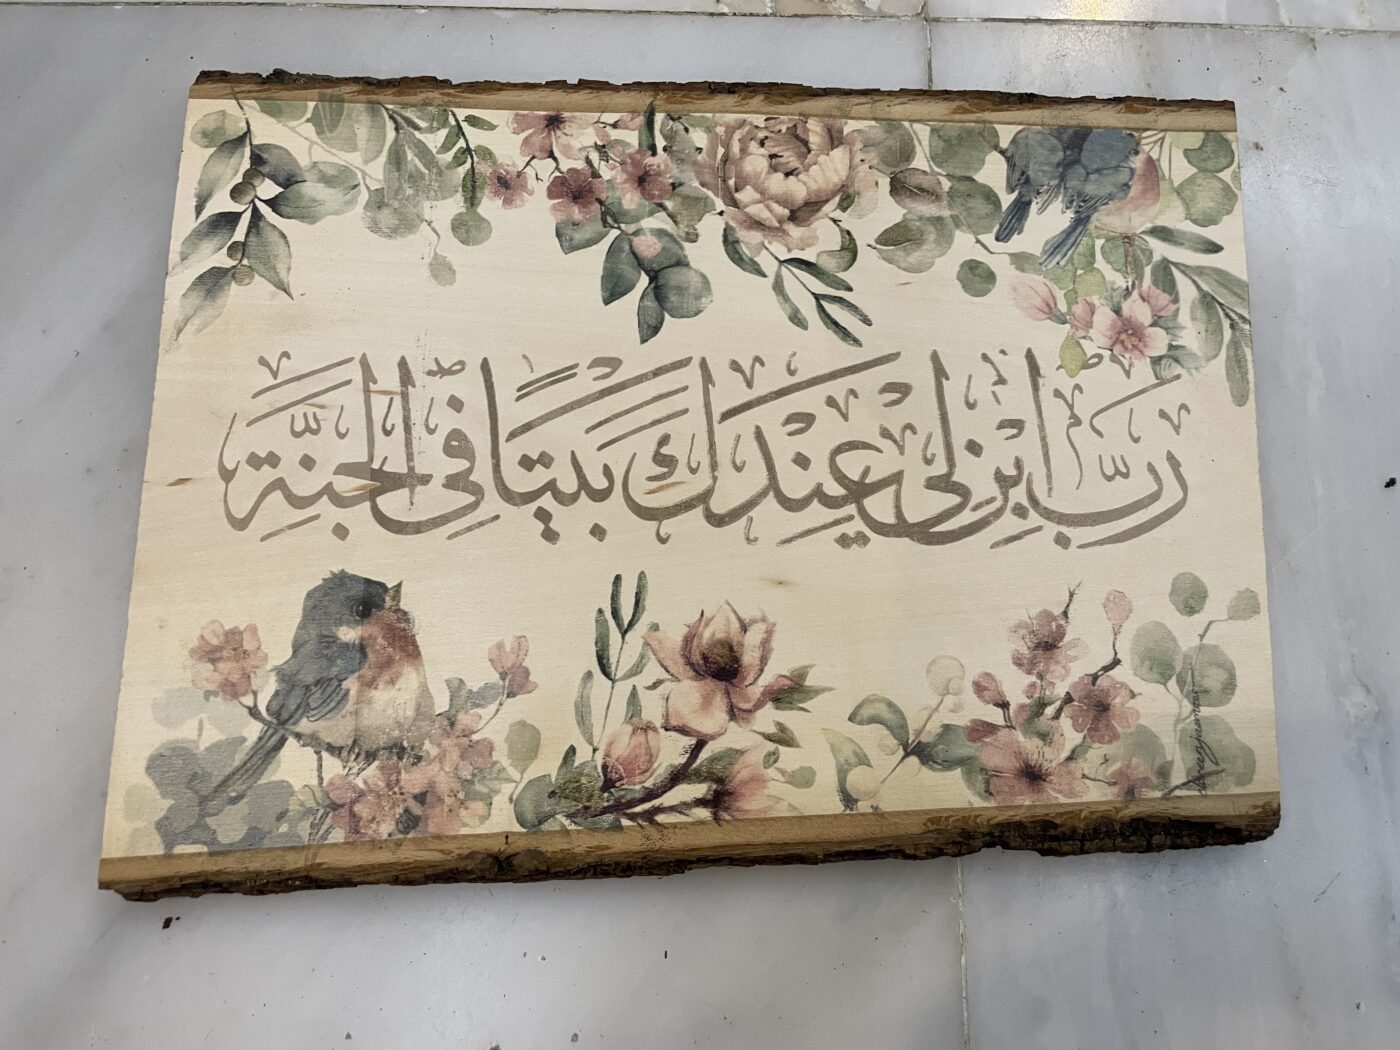 رَبِّ ابْنِ لِي عِنْدَكَ بَيْتًا فِي الْجَنَّةِ